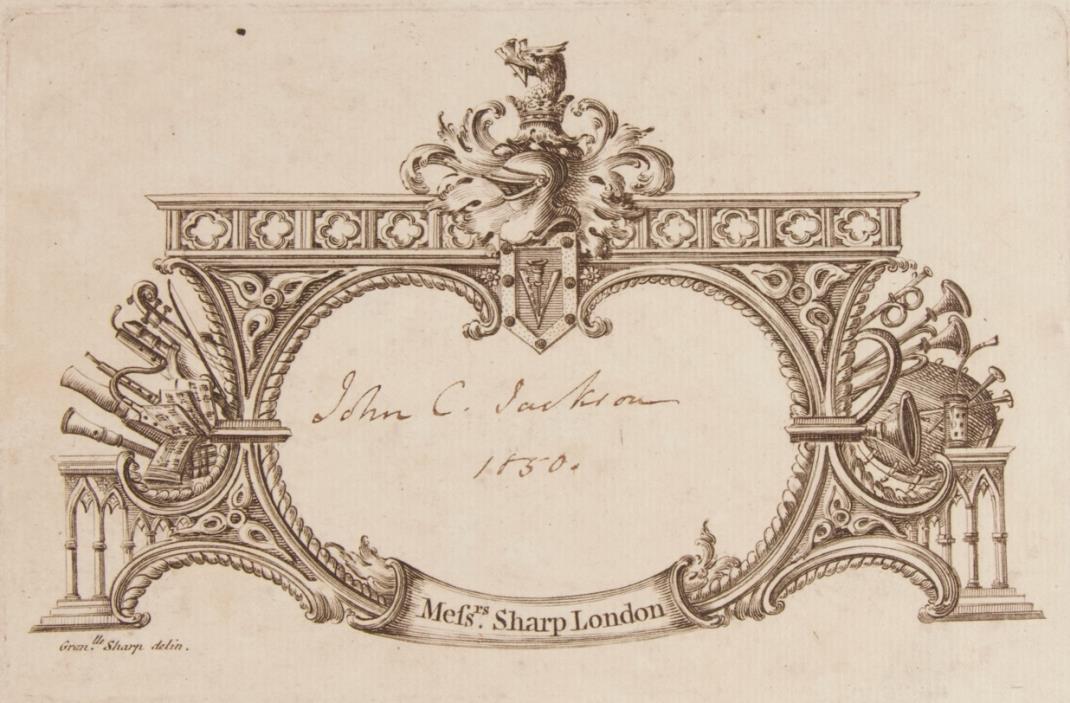 John C. Jackson
1850.
Meſs.rs Sharp London
Gran.lle Sharp delin.